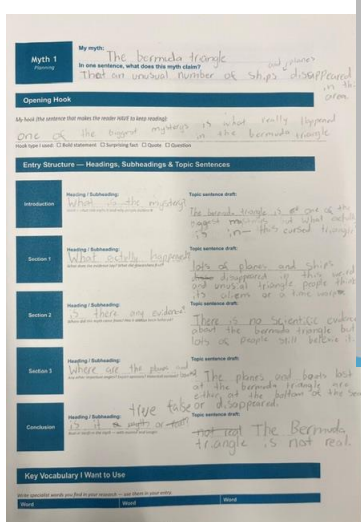 Myth 1
Planning
My myth: The bermuda triangle
In one sentence, what does this myth claim? and planes
That an unusual number of ships disappeared
in this
area
Opening Hook
My hook (the sentence that makes the reader WANT to keep reading):
one of the biggest mysterys is what really Happened
in the bermuda triangle
Hook type I used: ☐ Bold statement ☐ Surprising fact ☐ Quote ☐ Question
Entry Structure — Headings, Subheadings & Topic Sentences
Introduction
Heading / Subheading:
What is the mystery?
Topic sentence draft:
The bermuda triangle is one of the
biggest
is in this cursed triangle
Section 1
Heading / Subheading:
What actully happened?
Topic sentence draft:
lots of planes and ships
disappeared in this
and unusual triangle people think
is aliens or a time
Section 2
Heading / Subheading:
is there any evidence?
Topic sentence draft:
There is no Scientific
about the bermuda triangle but
lots of people still believe it.
Section 3
Heading / Subheading:
Where are the planes and
Topic sentence draft:
The planes and boats lost
at the bermuda triangle are
either at the bottom of the sea
or disappeared.
Conclusion
Heading / Subheading:
true false
is it a myth or
Topic sentence draft:
not real The Bermuda
triangle is not real.
Key Vocabulary I Want to Use
Write specialist words you find in your research — use them in your entry.
Word
Word
Word